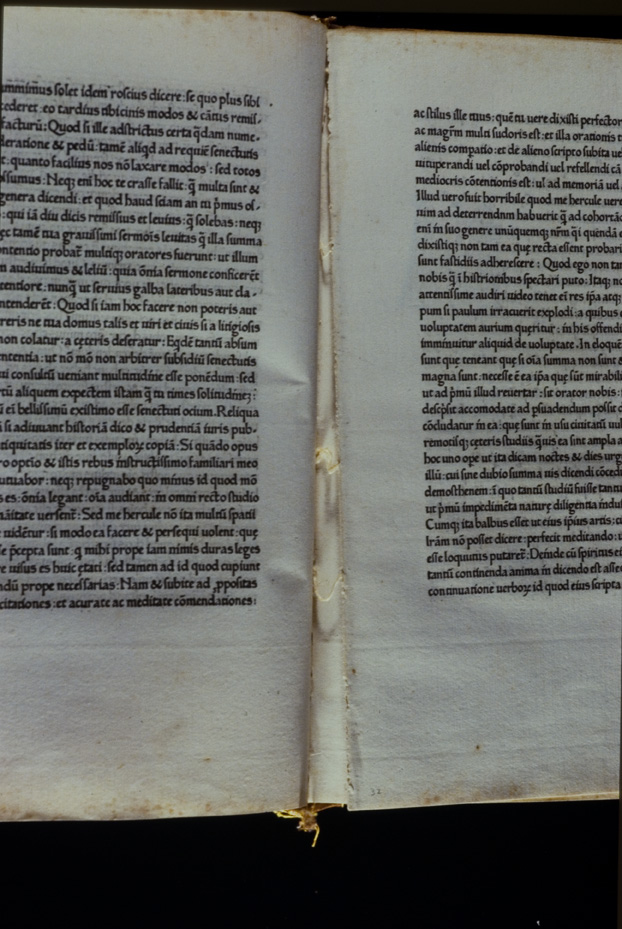 ummimus solet idem roscius dicere: se quo plus sibi
cederet: eo tardius tibicinis modos & cãtus remis-
facturũ: Quod si ille adstrictus certa q̃dam nume-
deratione & pedũ: tamẽ aliqd ad requiẽ senectutis
t: quanto facilius nos nõ laxare modos: sed totos
ossumus: Neq; enĩ hoc te crasse fallit: q̃ multa sint &
genera dicendi: et quod haud sciam an tu p̃mus os-
: qui iã diu dicis remissius et leuius: q̃ solebas: neq;
ęc tamẽ tua grauissimi sermõis leuitas q̃ illa summa
ontentio probat̃ multiq; oratores fuerunt: ut illum
n audiuimus & leliũ: quia õnia sermone conficerẽt
tentiore: nunq̃ ut seruius galba lateribus aut cla-
ntenderẽt: Quod si iam hoc facere non poteris aut
reris ne tua domus talis et uiri et ciuis si a litigiosis
non colatur: a cęteris deseratur: Eqdẽ tantũ absum
ntentia: ut nõ mõ non arbitrer subsidiũ senectutis
ui consultũ ueniant multitudine esse ponẽdum: sed
tũ aliquem expectem istam q̃ tu times solitudinẽ:
ũ eĩ bellissimũ existimo esse senectuti ocium. Reliqua
ã si adiuuant historiã dico & prudentiã iuris pub-
tiquitatis iter et exemploꝝ copiã: Si quãdo opus
ro optĩo & istis rebus instructissimo familiari meo
utuabor: neq; repugnabo quo minus id quod mõ
s es: õnia legant: oĩa audiant: in omni recto studio
nãitate uersent̃: Sed me hercule nõ ita multũ spatii
e uidẽtur: si modo ea facere & persequi uolent: quę
e p̃cepta sunt q̃ mihi prope iam nimis duras leges
e uisus es huic ętati: sed tamen ad id quod cupiunt
ndũ prope necessarias: Nam & subite ad ꝓpositas
citationes: et acurate ac meditate cõmendationes:
ac stilus ille tuus: quẽ tu uere dixisti perfector
ac magr̃m multi sudoris est: et illa orationis t
alienis compatio: et de alieno scripto subita ue
uituperandi uel cõprobandi uel refellendi cã
mediocris cõtentionis est: ul ad memoriã uel
Illud uero fuit horribile quod me hercule uere
uim ad deterrendum habuerit q̃ ad cohortã
enĩ in suo genere unũquemq; nr̃m q̃i quendã
dixistiq; non tam ea quę recta essent probari
sunt fastidiis adherescere: Quod ego non ta
nobis q̃ ĩ histrionibus spectari puto: Itaq; no
attentissime audiri uideo tenet eĩ res ipa atq;
pum si paulum irracuerit explodi: a quibus
uoluptatem aurium queritur: in his offendi
imminuitur aliquid de uoluptate. In eloquẽ
sunt quę teneant quę si oĩa summa non sunt &
magna sunt: necesse ẽ ea ipa quę sũt mirabili
ut ad p̃mũ illud reuertar: sit orator nobis:
descp̃sit accomodate ad p̃suadendum possit
cõcludatur in ea: quę sunt in usu ciuitatũ uul
remotisq; cęteris studiis q̃uis ea sint ampla a
hoc uno ope ut ita dicam noctes & dies urg
illũ: cui sine dubio summa uis dicendi cõced
demosthenem: ĩ quo tantũ studiũ fuisse tantu
ut p̃mũ impedimẽta naturę diligentia indul
Cumq; ita balbus esset ut eius ip̃ius artis: cu
lr̃am nõ posset dicere: perfecit meditando: u
esse loquutus putaret̃: Deinde cũ spiritus ei
tantũ continenda anima in dicendo est asse
continuatione uerboꝝ id quod eius scripta